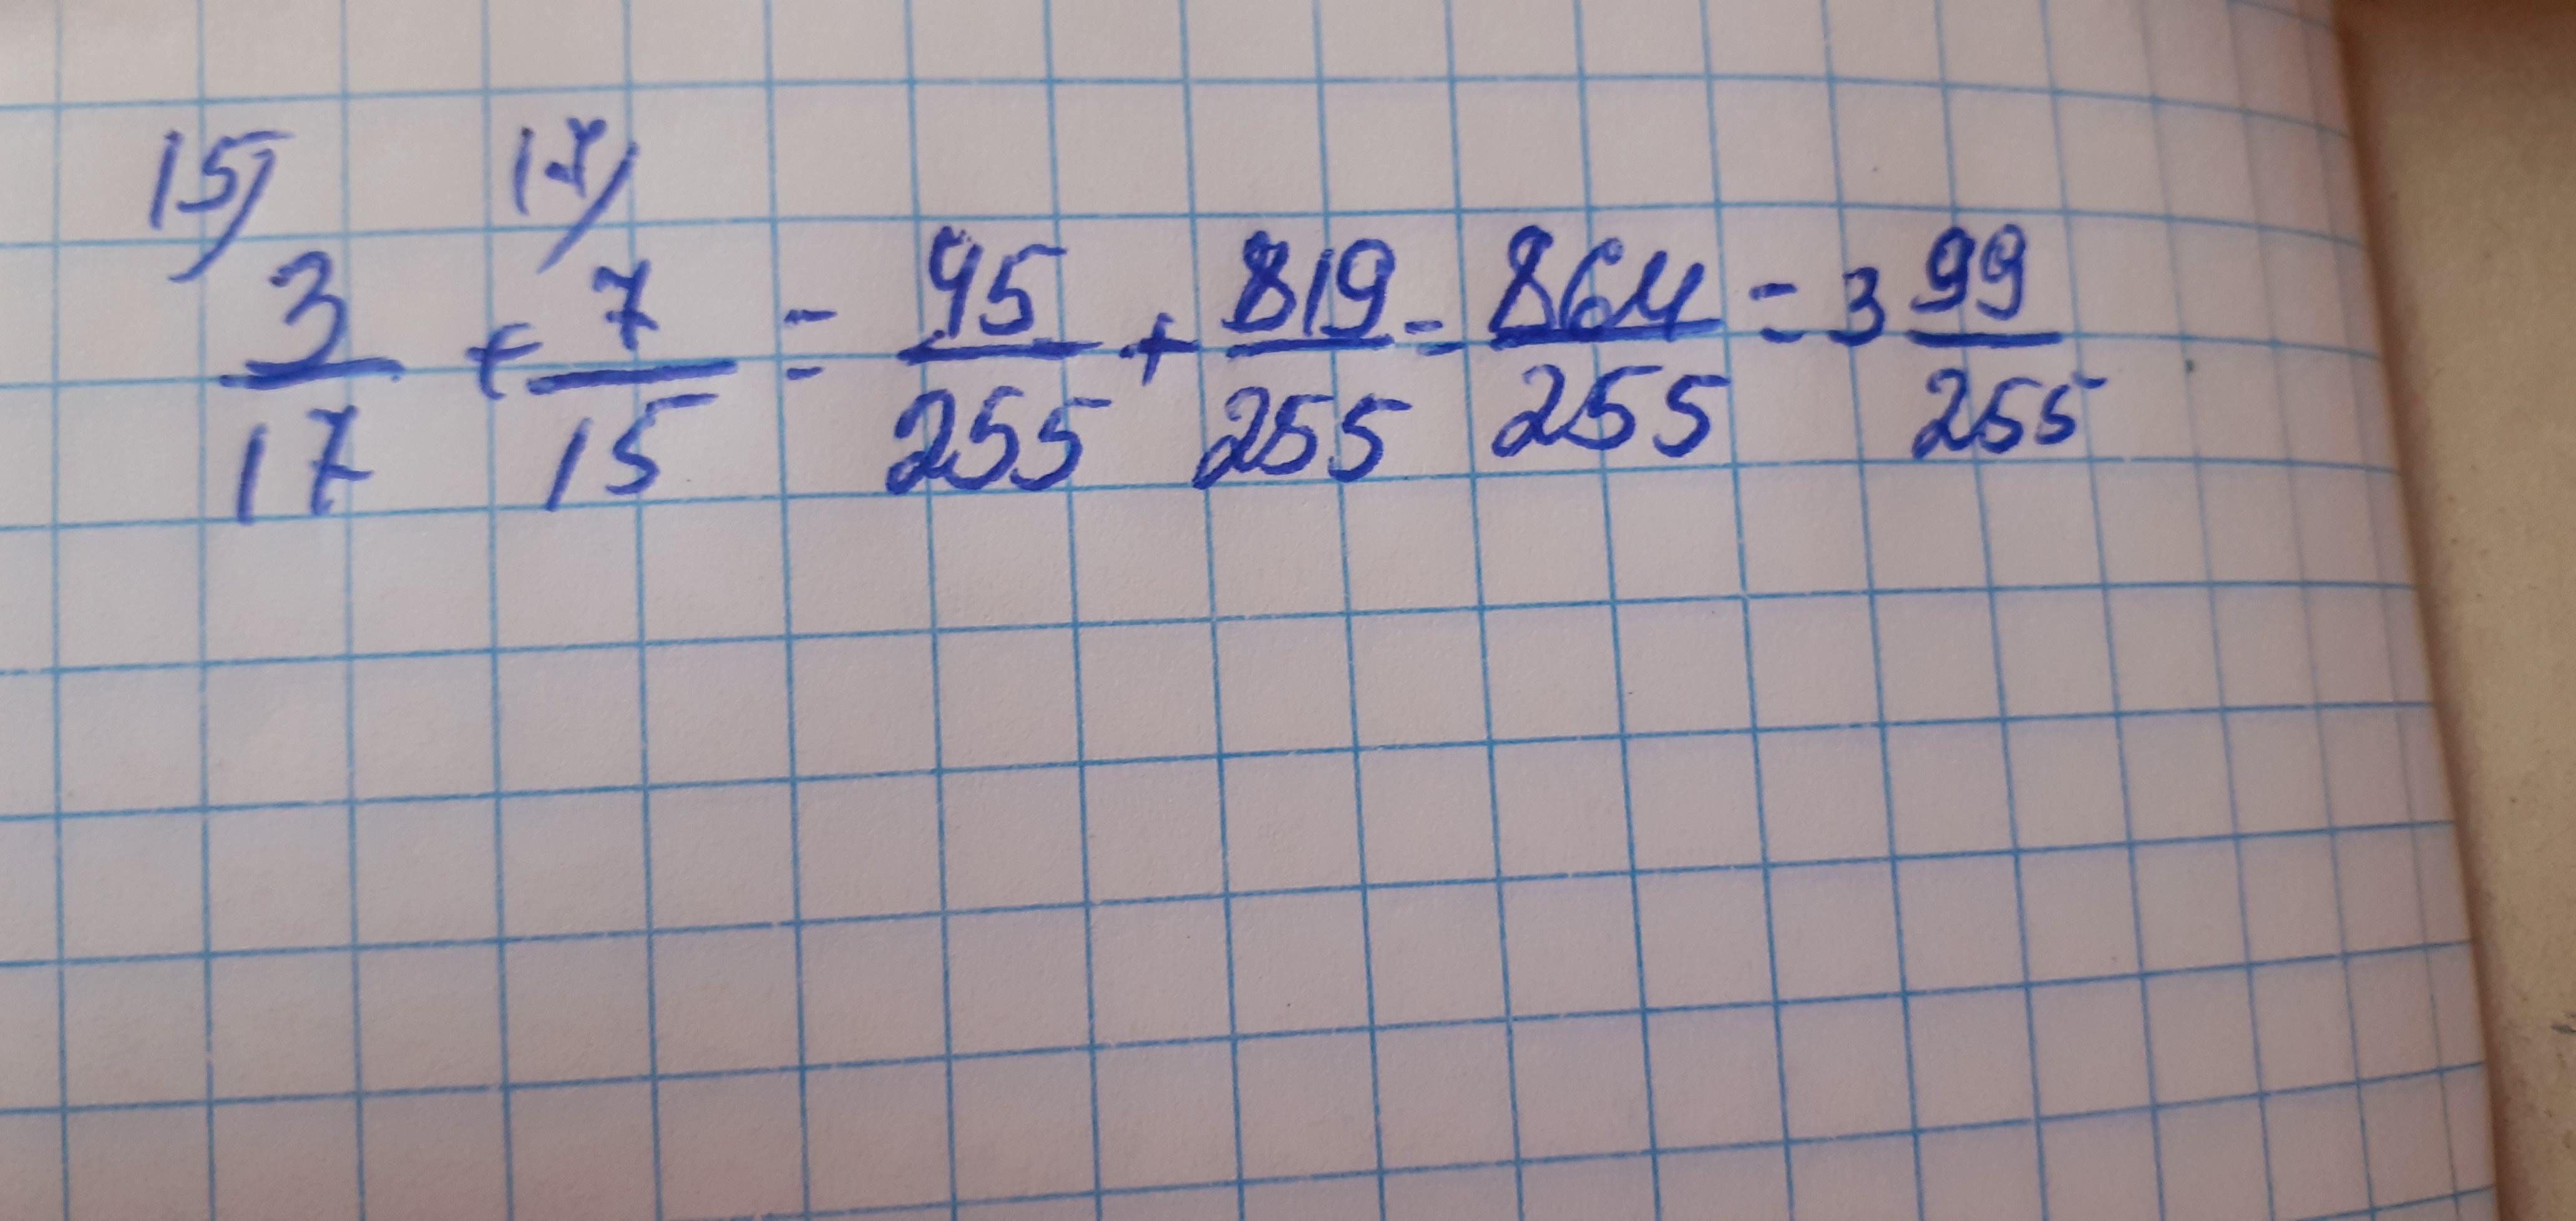 15/ 17/
3/17 + 7/15 = 45/255 + 819/255 = 864/255 = 3 99/255